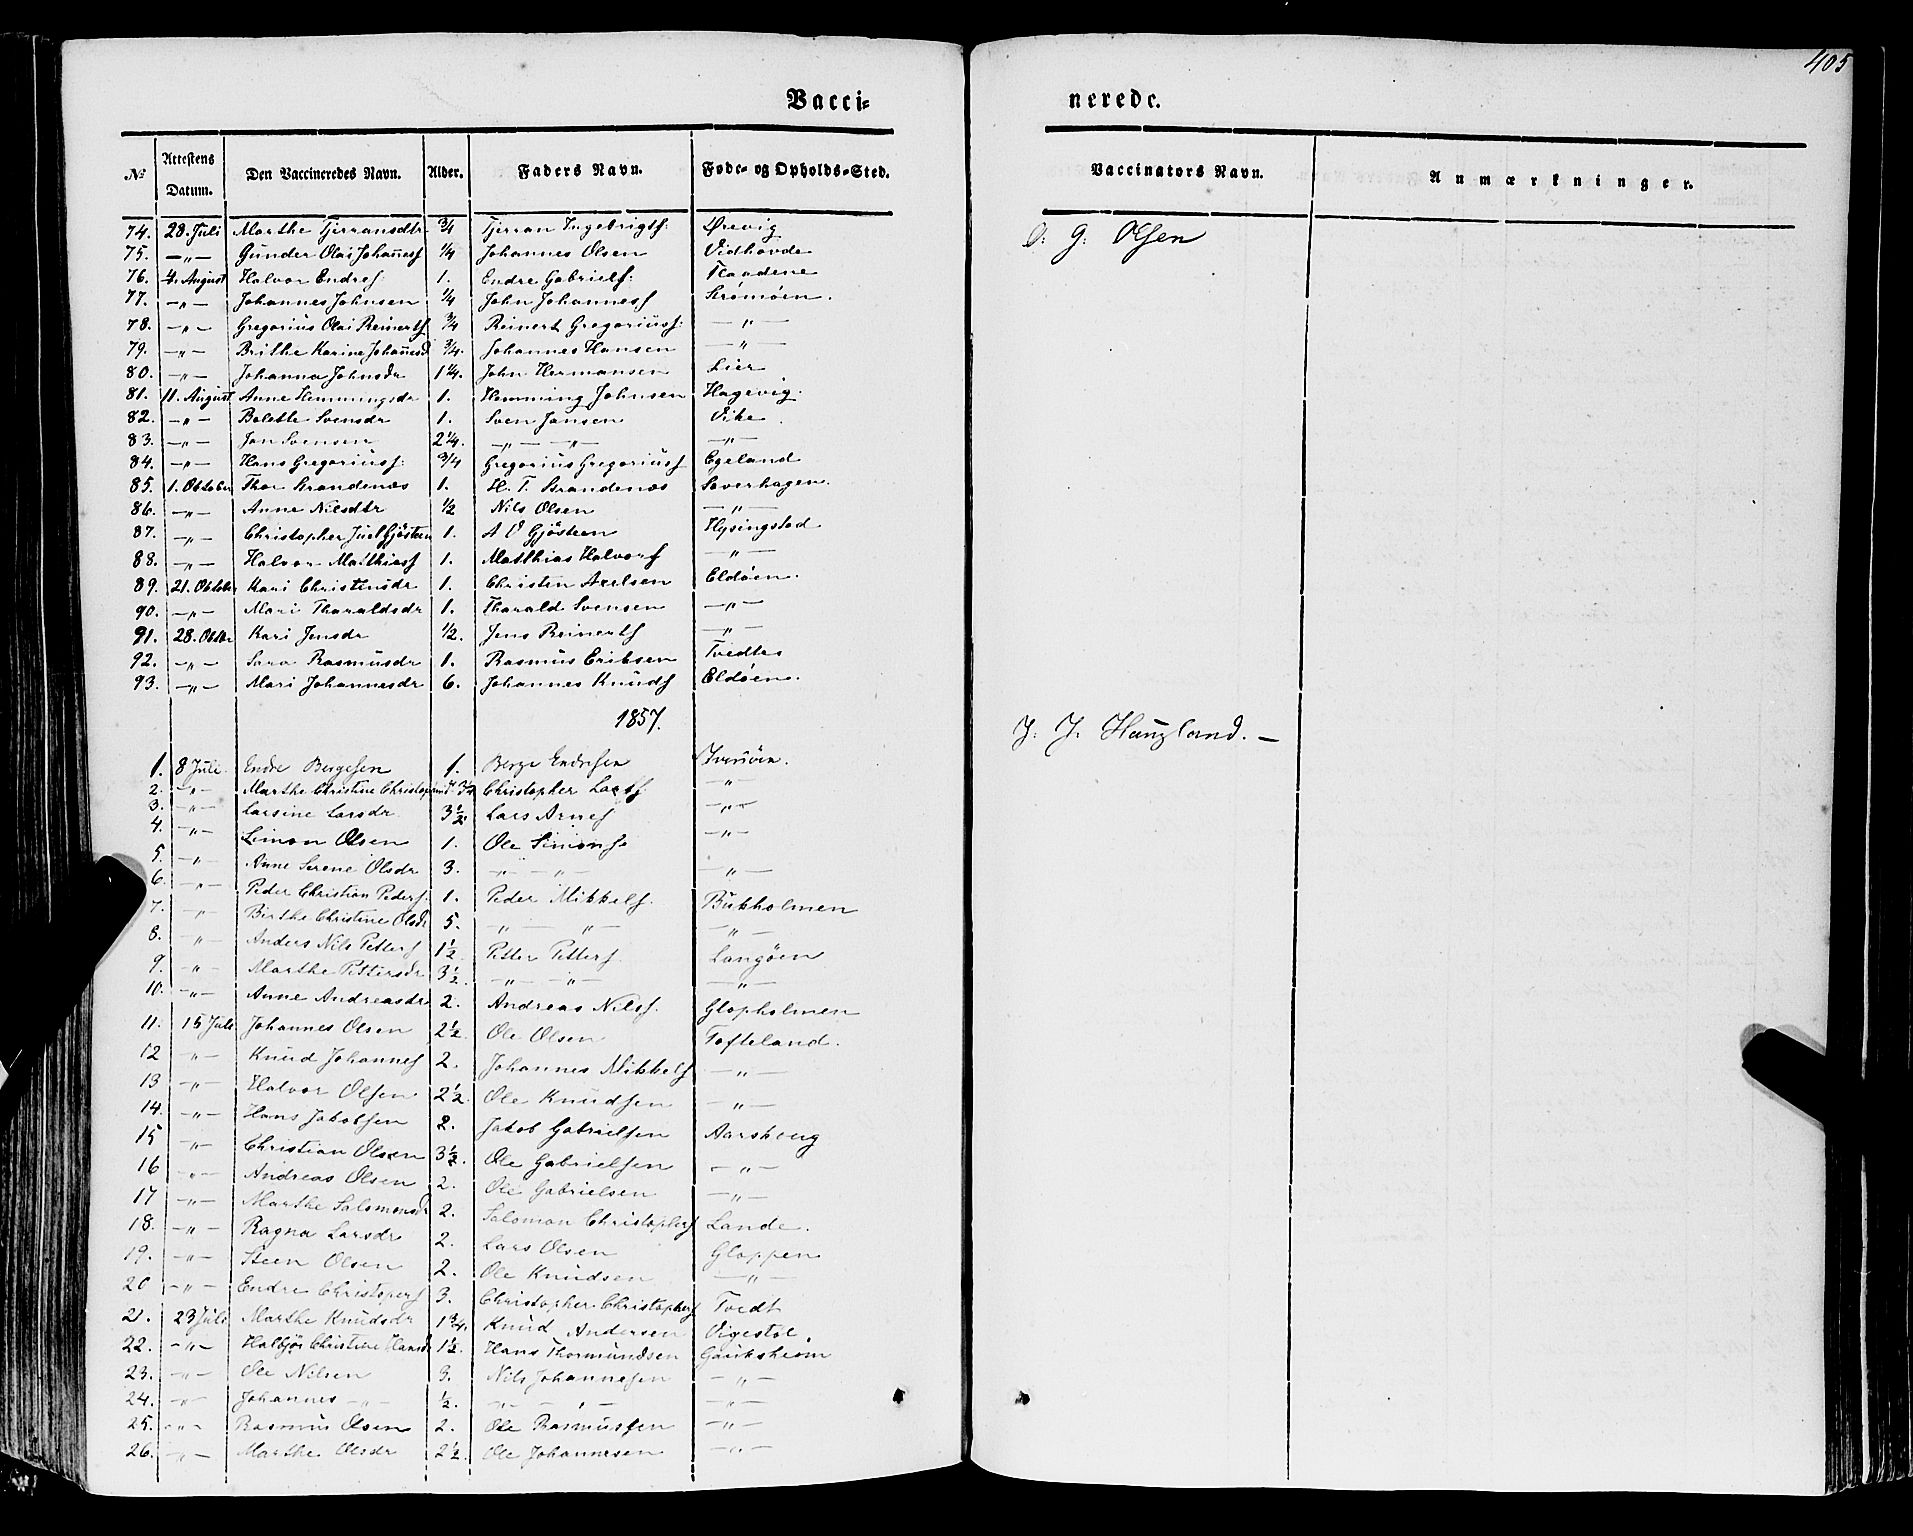 405
Vacci- nerede.
№ Attestens Datum. Den Vaccineredes Navn. Alder. Faders Navn. Føde- og Opholds-Sted. Vaccinators Navn. Anmærkninger.
74. 28. Juli Marthe Tjerransdtr 3/4 Tjerran Ingebrigts: Ørevig O: G: Olsen
75. —"— Gunder Olai Johaness 1/4 Johannes Olsen Vidhovde
76. 4. August Halvor Endres: 1. Endre Gabriels: Flaadene
77. —"— Johannes Johnsen 1/4 John Johanness Strømøen.
78. —"— Gregorius Olai Reinerts 3/4 Reinert Gregoriuss: —"—
79. —"— Brithe Karine Johanesd 3/4. Johannes Hansen —"—
80. —"— Johanna Johnsdr 1 1/4. John Hermansen Lier
81. 11. August Anne Hemmingsdr 1. Hemming Johnsen Hagevig.
82. —"— Bolethe Svensdr 1. Sven Jansen Vike.
83. —"— Jan Svensen 2 1/4. —"— —"— —"—
84. —"— Hans Gregoriuss: 3/4 Gregorius Gregoriuss Egeland
85. 1. Oktober Thor Brandenæs 1. H. T. Brandenæs Søverhagen.
86. —"— Anne Nilsdtr 1/2 Nils Olsen —"—
87. —"— Christopher Juel Gjøsteen 1. A V Gjøsteen Hysingstad
88. —"— Halvor Mathiass 1. Matthias Halvors —"—
89. 21. Oktober Kari Christensdr 1. Christen Axelsen Eldøen.
90. —"— Mari Tharaldsdr 1. Tharald Svensen —"—
91. 28. Oktbr Kari Jensdr 1/2. Jens Reinerts —"—
92. —"— Sara Rasmusdr 1. Rasmus Eriksen Tvedtes
93. —"— Mari Johannesdr 6. Johannes Knuds Eldøen.
1857.
1. 8 Juli. Endre Bergesen 1. Berge Endresen Iversøen. J: J. Haugland. —
2. —"— Marthe Christine 3 1/2 Christopher Lars: —"—
3. —"— Larsine Larsdr 3 1/2. Lars Arnes —"—
4. —"— Simon Olsen 1. Ole Simons. —"—
5. —"— Anne Serene Olsdr 3. —"— —"— —"—
6. —"— Peder Christian Peders. 1. Peder Mikkels. Bukholmen
7. —"— Birthe Christine Olsdr 5. —"— —"— —"—
8. —"— Anders Nils Petters 1 1/2 Petter Petters. Langøen
9. —"— Marthe Pettersdr 3 1/2. —"— —"— —"—
10. —"— Anne Andreasdr 2. Andreas Nilss. Glopholmen
11. 15 Juli Johannes Olsen 2 1/2. Ole Olsen Tofteland.
12 —"— Knud Johannes 2. Johannes Mikkels —"—
13 —"— Halvor Olsen 2 1/2. Ole Knudsen —"—
14. —"— Hans Jakobsen 2. Jakob Gabrielsen Aarskoug
15 —"— Christian Olsen 3 1/2. Ole Gabrielsen —"—
16 —"— Andreas Olsen 2. Ole Gabrielsen —"—
17 —"— Marthe Salomonsdr 2. Salomon Christophers Lande.
18. —"— Ragna Larsdr 2. Lars Olsen Gloppen
19. —"— Steen Olsen 2. Ole Knudsen —"—
20 —"— Endre Christopers 3. Christopher Christophers Tvedt
21. 23 Juli Marthe Knudsdr 1 3/4. Knud Andersen Vigestøl.
22. —"— Halbjør Christine Hansdr 1 1/2. Hans Thormundsen Gauksheim
23. —"— Ole Nilsen 3. Nils Johannesen —"—
24. —"— Johannes —"— 1/2. —"— —"— —"—
25. —"— Rasmus Olsen 2. Ole Rasmussen —"—
26. —"— Marthe Olsdr 2 1/2. Ole Johannesen —"—